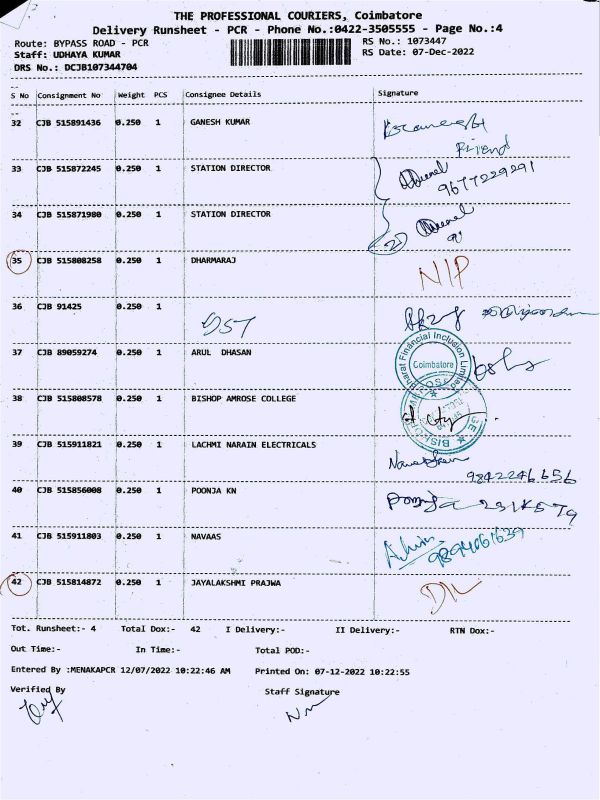 THE PROFESSIONAL COURIERS, Coimbatore
Delivery Runsheet - PCR - Phone No.:0422-3505555 - Page No.:4
Route: BYPASS ROAD - PCR RS No.: 1073447
Staff: UDHAYA KUMAR RS Date: 07-Dec-2022
DRS No.: DCJB107344704
S No Consignment No Weight PCS Consignee Details Signature
32 CJB 515891436 0.250 1 GANESH KUMAR
Friend
33 CJB 515872245 0.250 1 STATION DIRECTOR
9677229291
34 CJB 515871980 0.250 1 STATION DIRECTOR
35 CJB 515808258 0.250 1 DHARMARAJ NIP
36 CJB 91425 0.250 1
37 CJB 89059274 0.250 1 ARUL DHASAN
Bharat Financial Inclusion Limited
Coimbatore
38 CJB 515808578 0.250 1 BISHOP AMROSE COLLEGE
39 CJB 515911821 0.250 1 LACHMI NARAIN ELECTRICALS
9842246656
40 CJB 515856008 0.250 1 POONJA KN
41 CJB 515911803 0.250 1 NAVAAS
9894061639
42 CJB 515814872 0.250 1 JAYALAKSHMI PRAJWA
Tot. Runsheet:- 4 Total Dox:- 42 I Delivery:- II Delivery:- RTN Dox:-
Out Time:- In Time:- Total POD:-
Entered By :MENAKAPCR 12/07/2022 10:22:46 AM Printed On: 07-12-2022 10:22:55
Verified By Staff Signature